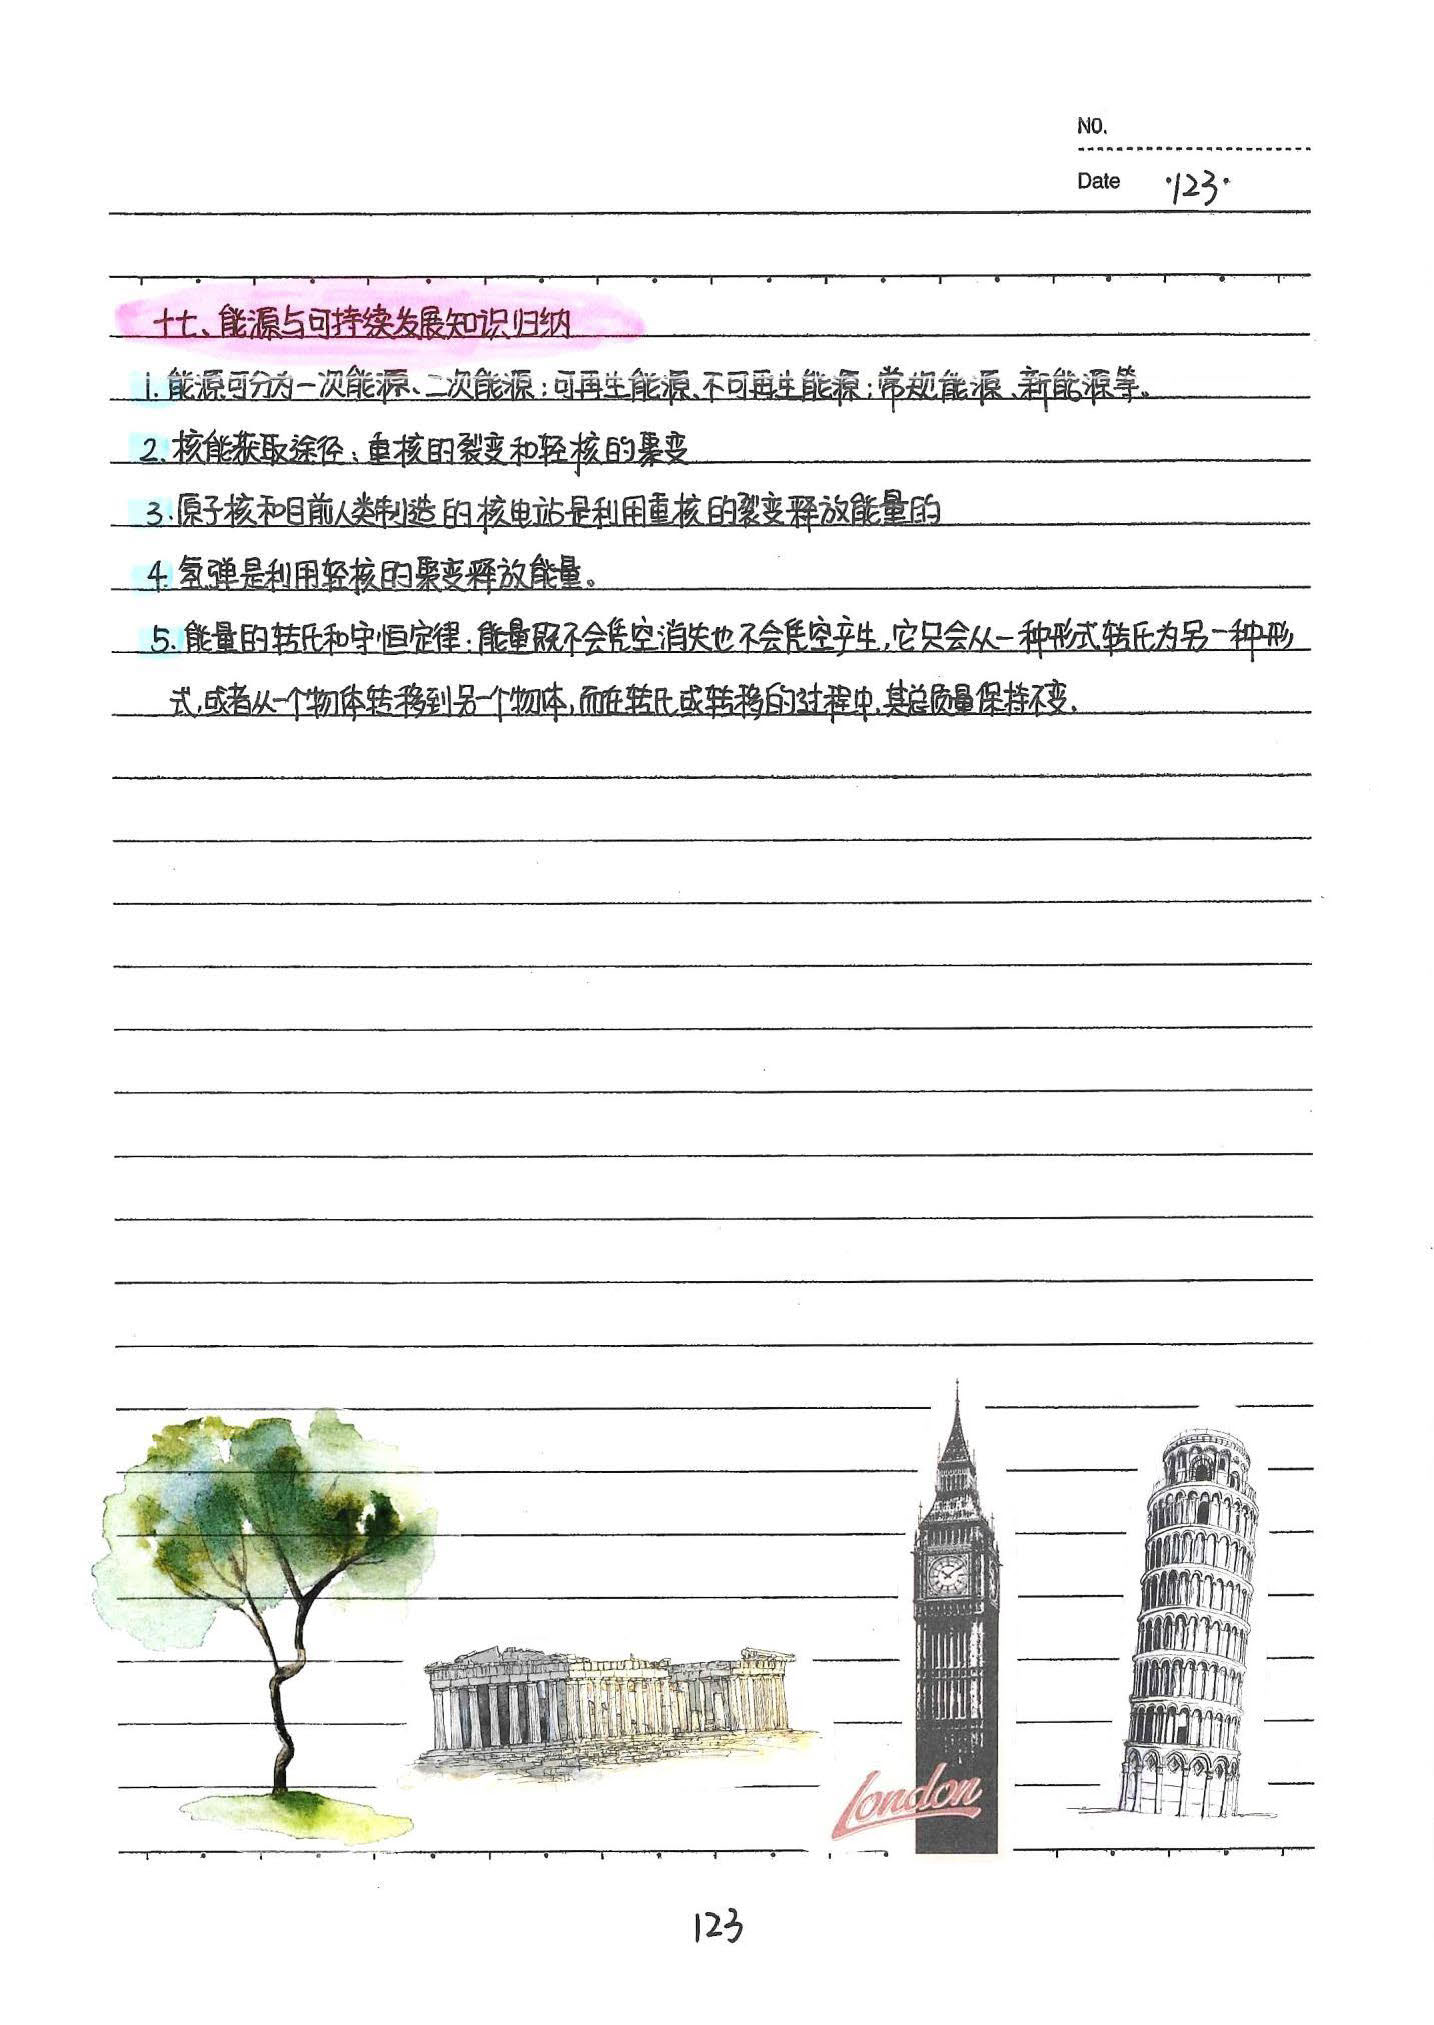 NO.
Date ·123·
十七、能源与可持续发展知识归纳
1. 能源可分为一次能源、二次能源；可再生能源、不可再生能源；常规能源、新能源等。
2. 核能获取途径：重核的裂变和轻核的聚变
3. 原子核和目前人类制造的核电站是利用重核的裂变释放能量的
4. 氢弹是利用轻核的聚变释放能量。
5. 能量的转氏和守恒定律：能量既不会凭空消失也不会凭空产生，它只会从一种形式转氏为另一种形
式，或者从一个物体转移到另一个物体，而在转氏或转移的过程中，其总质量保持不变.
London
123